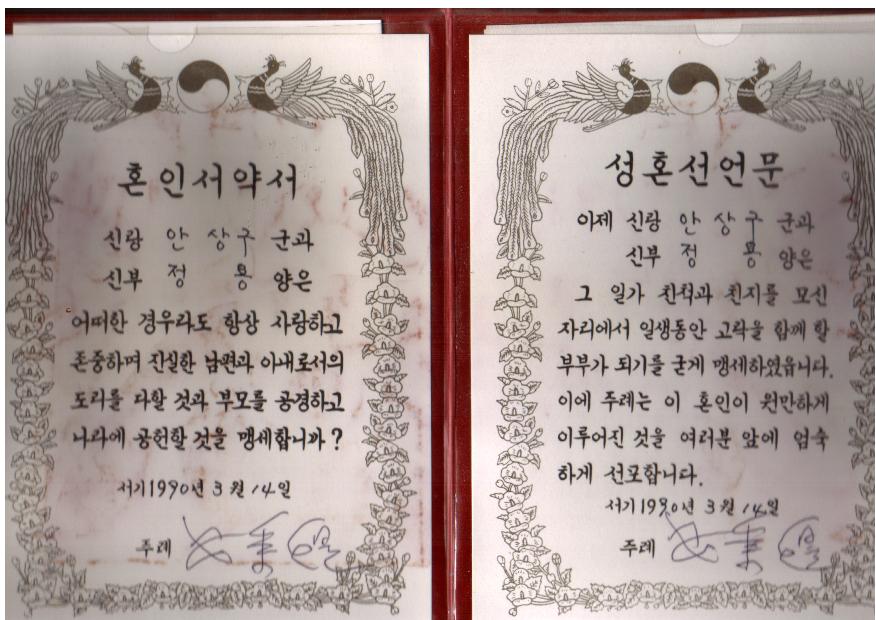 혼인서약서
신랑 안 상 구 군과
신부 정 용 양은
어떠한 경우라도 항상 사랑하고
존중하며 진실한 남편과 아내로서의
도리를 다할 것과 부모를 공경하고
나라에 공헌할 것을 맹세합니까?
서기1990년 3월 14일
주례
성혼선언문
이제 신랑 안 상 구 군과
신부 정 용 양은
그 일가 친척과 친지를 모신
자리에서 일생동안 고락을 함께 할
부부가 되기를 굳게 맹세하였읍니다.
이에 주례는 이 혼인이 원만하게
이루어진 것을 여러분 앞에 엄숙
하게 선포합니다.
서기1990년 3월 14일
주례